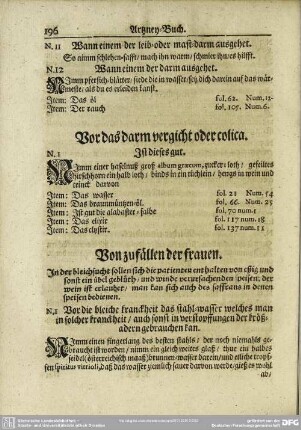 196 Artzney-Buch.
N. 11 Wann einem der leib oder mast-darm ausgehet.
So nimm schlehen-safft / mach ihn warm / schmier ihn / es hilfft.
N. 12 Wann einem der darm ausgehet.
Nimm pfersich-blätter / siede die in wasser / setz dich darein auf das wär-
meste / als du es erleiden kanst.
Item: Das öl fol. 62. Num. 12.
Item: Der rauch fol. 105. Num. 6.
Vor das darm vergicht oder colica.
N. 1 Ist dieses gut.
Nimm einer haselnuß groß album græcum, zucker 1 loth / gefeiltes
hirschhorn ein halb loth / binds in ein tüchlein / hengs in wein und
trinck darvon
Item: Das wasser fol. 21 Num. 14
Item: Das fol. 66. Num. 25
Item: Ist gut die alabaster-salbe fol. 70 num. 1
Item: Das elixir fol. 117 num. 18
Item: Das clystir. fol. 137 num. 11
Von zufällen der frauen.
In der bleichsucht sollen sich die patienten enthalten von eßig und
sonst ein übel geblüth / und winde verursachenden speisen / der
wein ist erlaubet / man kan sich auch des saffrans in denen
speisen bedienen.
N. 1 Vor die bleiche kranckheit das stahl-wasser welches man
in solcher kranckheit / auch sonst in verstopffungen der kröß-
adern gebrauchen kan.
Nimm einen fingerlang des besten stahls / der noch niemahls ge-
braucht ist worden / nimm ein gleich weites glaß / thue ein halbes
seidel (österreichisch maaß) brunnen-wasser darein / und etliche tropf-
fen spiritus vitrioli, daß das wasser ziemlich sauer darvon werde / gieß es wohl
ab /